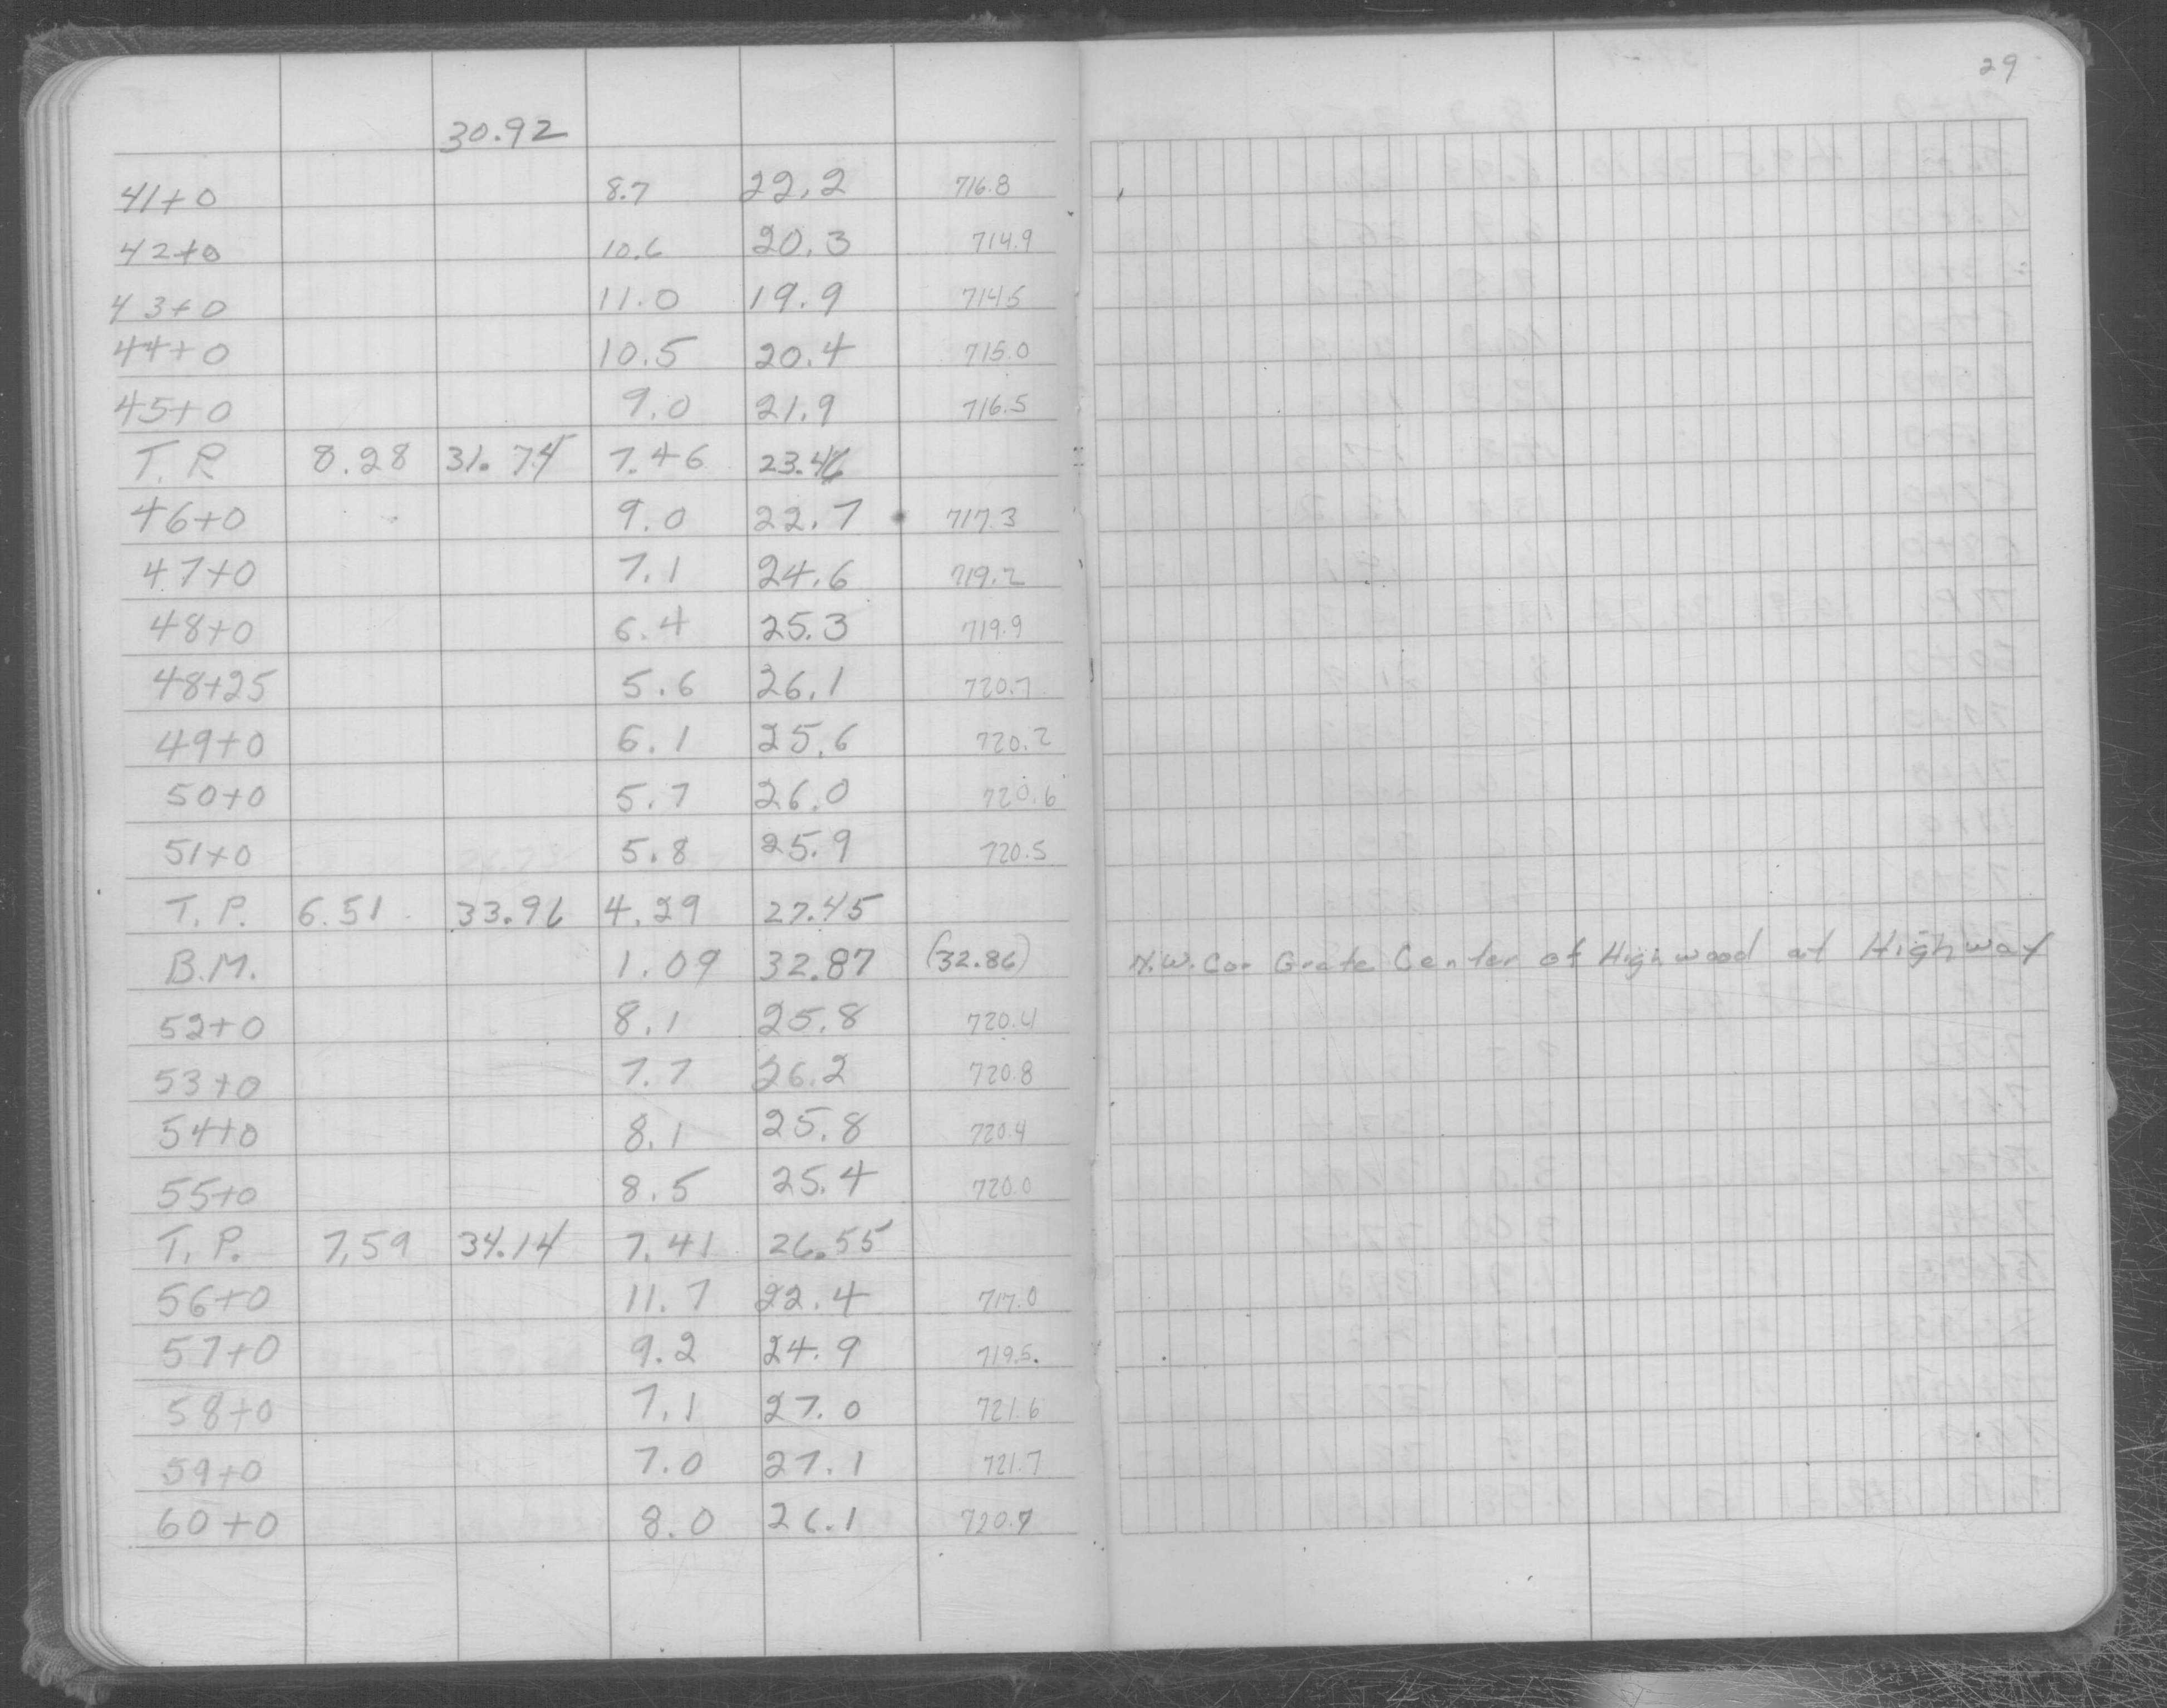 29
30.92
41+0 8.7 22.2 716.8
42+0 10.6 20.3 714.9
43+0 11.0 19.9 714.5
44+0 10.5 20.4 715.0
45+0 9.0 21.9 716.5
T.P. 8.28 31.74 7.46 23.46
46+0 9.0 22.7 717.3
47+0 7.1 24.6 719.2
48+0 6.4 25.3 719.9
48+25 5.6 26.1 720.7
49+0 6.1 25.6 720.2
50+0 5.7 26.0 720.6
51+0 5.8 25.9 720.5
T.P. 6.51 33.96 4.29 27.45
B.M. 1.09 32.87 (32.86) N.W. Cor Grate Center of Highwood at Highway
52+0 8.1 25.8 720.4
53+0 7.7 26.2 720.8
54+0 8.1 25.8 720.4
55+0 8.5 25.4 720.0
T.P. 7.59 34.14 7.41 26.55
56+0 11.7 22.4 717.0
57+0 9.2 24.9 719.5.
58+0 7.1 27.0 721.6
59+0 7.0 27.1 721.7
60+0 8.0 26.1 720.7